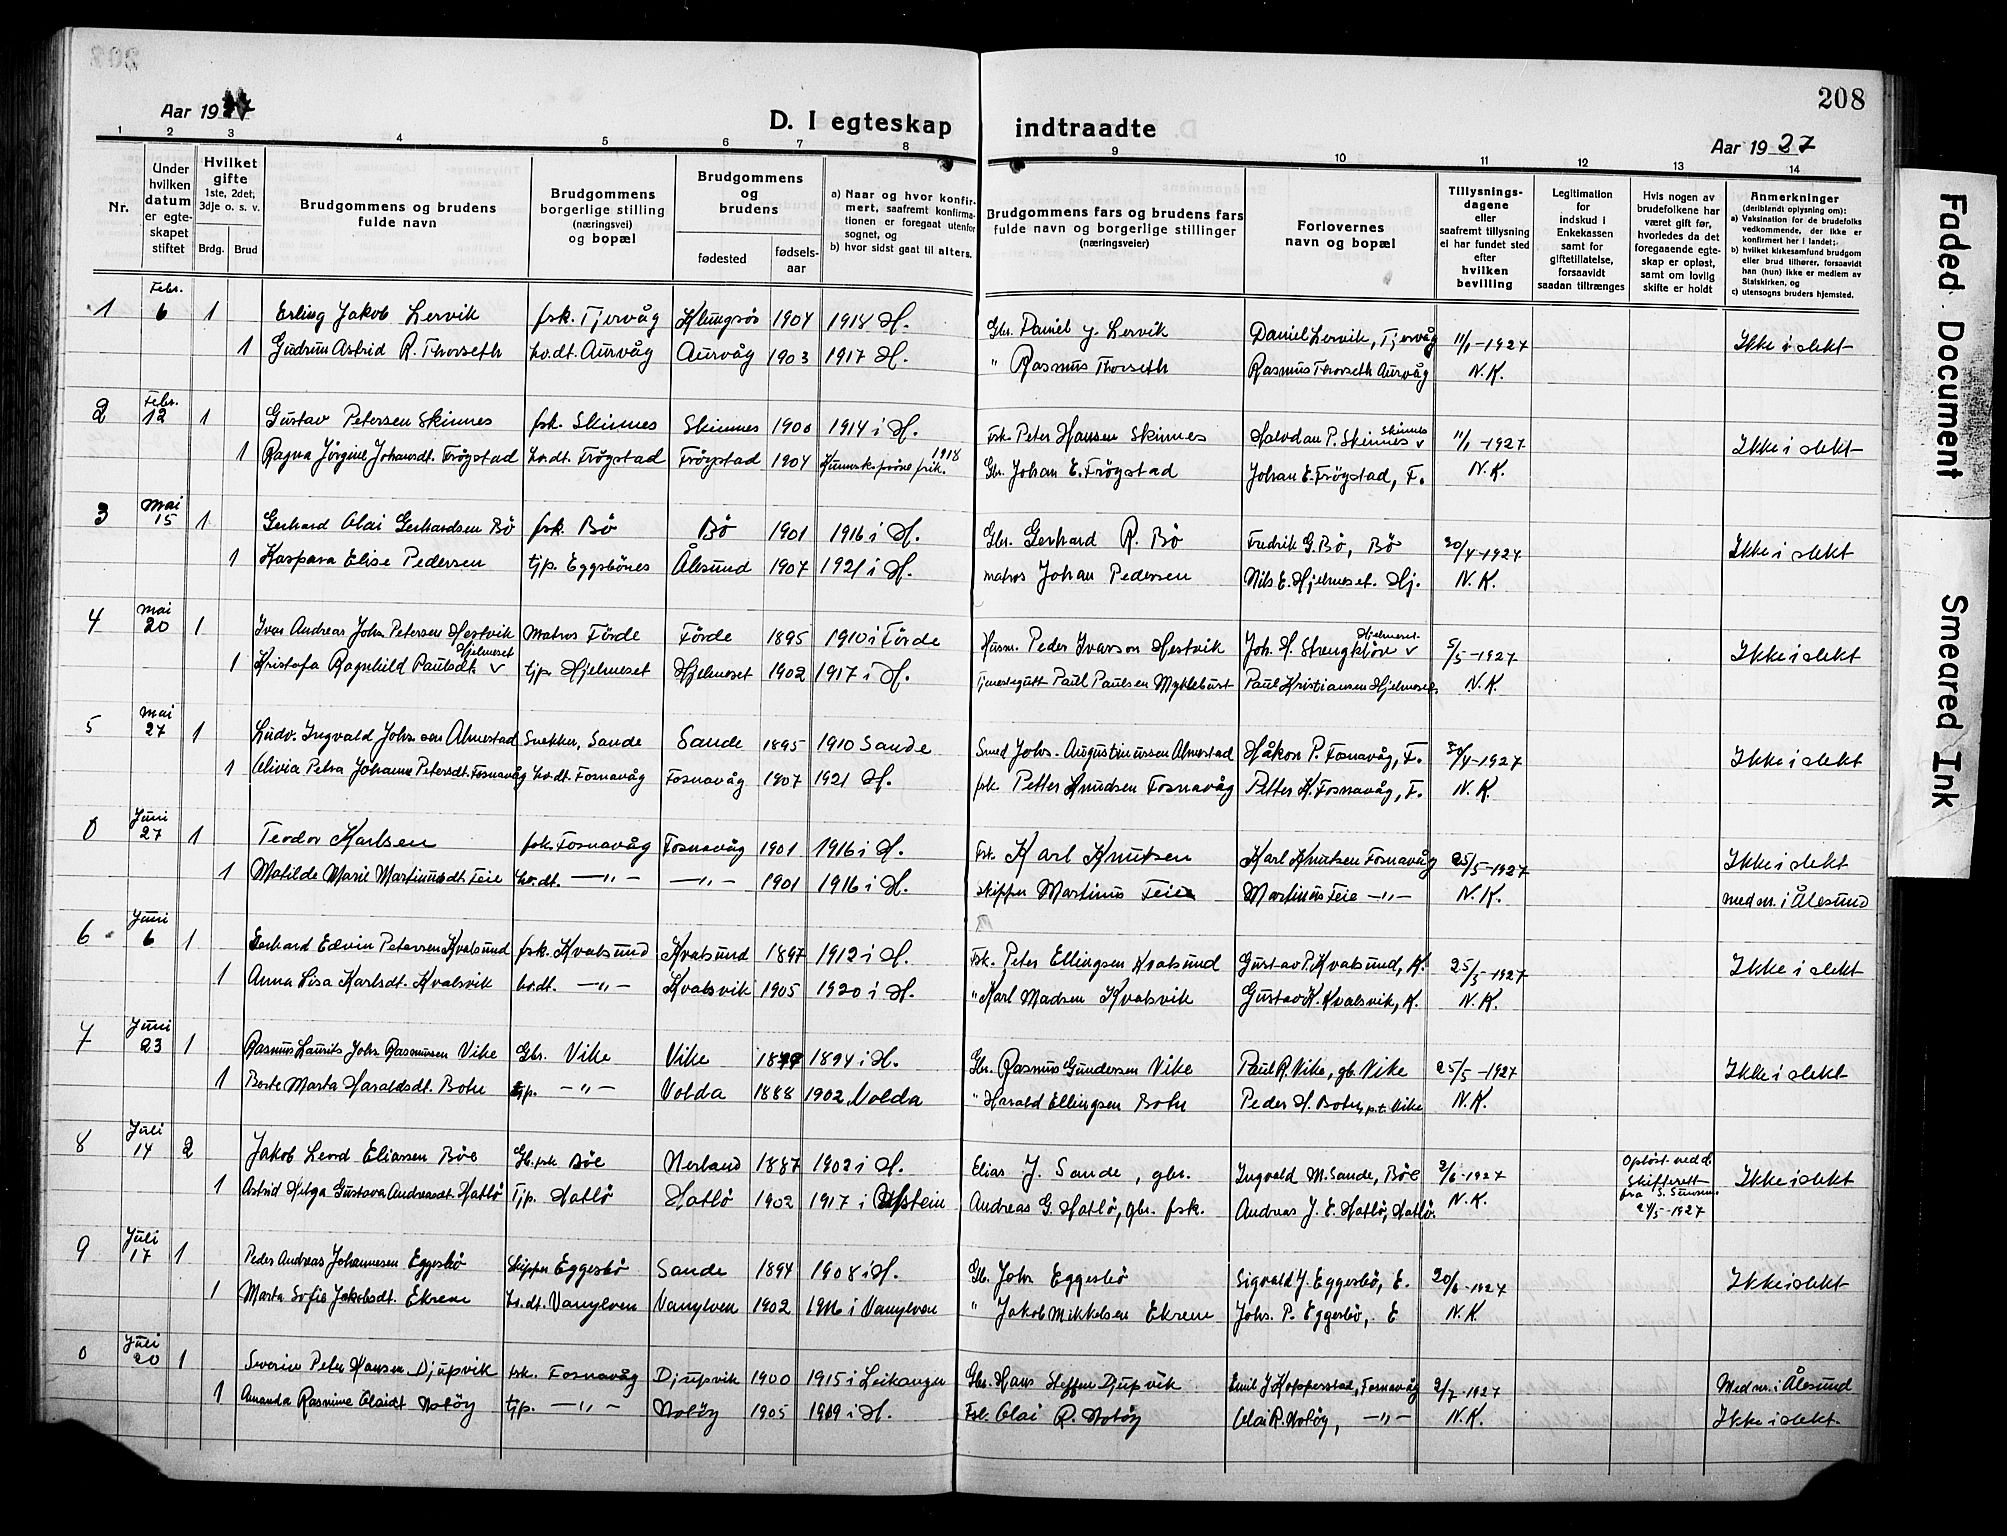 208
Aar 1927
D. I egteskap indtraadte
Aar 1927
1 2 3 4 5 6 7 8 9 10 11 12 13 14
Nr.
Under hvilken datum er egteskapet stiftet
Hvilket gifte 1ste, 2det, 3dje o. s. v.
Brdg. Brud
Brudgommens og brudens fulde navn
Brudgommens borgerlige stilling (næringsvei) og bopæl
Brudgommens og brudens
fødested
fødselsaar
a) Naar og hvor konfirmert, saafremt konfirmationen er foregaat utenfor sognet, og
b) hvor sidst gaat til alters.
Brudgommens fars og brudens fars fulde navn og borgerlige stillinger (næringsveier)
Forlovernes navn og bopæl
Tillysningsdagene eller saafremt tillysning ei har fundet sted efter hvilken bevilling
Legitimation for indskud i Enkekassen samt for giftetillatelse, forsaavidt saadan tiltrænges
Hvis nogen av brudefolkene har været gift før, hvorledes da det foregaaende egteskap er opløst, samt om lovlig skifte er holdt
Anmerkninger (deriblandt oplysning om): a) Vaksination for de brudefolks vedkommende, der ikke er konfirmert her i landet; b) hvilket kirkesamfund brudgom eller brud tilhører, forsaavidt han (hun) ikke er medlem av Statskirken, og c) utensogns bruders hjemsted.
1 Febr. 6 1 Erling Jakob Lervik fsk. Tjervåg Klungsös 1904 1918 H. Gbr. Daniel J. Lervik Daniel Lervik, Tjervåg 11/1-1927 Ikke i slekt
1 Gudrun Astrid R. Thorseth hv.dt. Aurvåg Aurvåg 1903 1917 H. " Rasmus Thorseth Rasmus Thorseth Aurvåg N.K.
2 Febr. 12 1 Gustav Petersen Skinnes fsk. Skinnes Skinnes 1900 1914 i H. Fsk. Peter Hansen Skinnes Halvdan P. Skinnes Skinnes 11/1-1927 Ikke i slekt
1 Ragna Jörgine Johansdt. Frögstad hv.dt. Frögstad Frögstad 1904 1918 Gbr. Johan E. Frögstad Johan E. Frögstad, F. N.K.
3 Mai 15 1 Gerhard Olai Gerhardsen Bö fsk. Bö Bö 1901 1916 i H. Gbr. Gerhard R. Bö Fredrik G. Bö, Bö 20/4-1927 Ikke i slekt
1 Kaspara Elise Pedersen tjp. Eggsbönes Ålesund 1907 1921 i H. matros Johan Pedersen Nils E. Hjelmeset. Hj. N.K.
4 Mai 20 1 Ivar Andreas Johs Petersen Hestvik Matros Förde Förde 1895 1910 i Förde Husm. Peder Ivarson Hestvik Joh. H. Strengklöv Hjelmeset 5/5-1927 Ikke i slekt
1 Kristofa Ragnhild Paulsdt. Hjelmeset tjp. Hjelmeset Hjelmeset 1902 1917 i H. Tjenestegutt Paul Paulsen Myklebust Paul Kristiansen Hjelmeset N.K.
5 Mai 27 1 Ludv. Ingvald Johs.sen Almestad Snekker, Sande Sande 1895 1910 Sande Smed Johs. Augustinussen Almestad Håkon P. Fosnavåg, F. 30/4-1927 Ikke i slekt
1 Olivia Petra Johanne Petersdt. Fosnavåg hv.dt. Fosnavåg Fosnavåg 1907 1921 H. fsk. Petter Knudsen Fosnavåg Petter K. Fosnavåg, F. N.K.
0 Juni 27 1 Teodor Karlsen fsk. Fosnavåg Fosnavåg 1901 1916 i H. Fsk. Karl Knutsen Karl Knutsen Fosnavåg 25/5-1927 Ikke i slekt
1 Matilde Marie Martinusdt. Teie hv.dt. —„— —„— 1901 1916 i H. skipper Martinus Teie Martinus Teie —„— N.K. med nr. i Ålesund
6 Juni 6 1 Gerhard Edvin Petersen Kvalsund fsk. Kvalsund Kvalsund 1897 1912 i H. Fsk. Peter Ellingsen Kvalsund Gustav P. Kvalsund, K. 25/5-1927 Ikke i slekt
1 Anna Lisa Karlsdt. Kvalsvik hv.dt. —„— Kvalsvik 1905 1920 i H. " Karl Madsen Kvalsvik Gustav K. Kvalsvik, K. N.K.
7 Juni 23 1 Rasmus Laurits Johs Rasmussen Vike Gbr. Vike Vike 1894 i H. Gbr. Rasmus Gundersen Vike Paul R. Vike, gb. Vike 25/5-1927 Ikke i slekt
1 Berte Marta Haraldsdt. Botn tjp. —„— Volda 1888 1902 Volda " Harald Ellingsen Botn Peder H. Botn, p.t. Vike N.K.
8 Juli 14 2 Jakob Leord Eliassen Böe Gb. fsk Böe Nerland 1887 1902 i H. Elias J. Sande, gbr. Ingvald M. Sande, Böe 2/6-1927 Oplöst ved d. Skifterett fra S. Sunnm. 24/5-1927 Ikke i slekt
1 Astrid Helga Gustava Andreasdt. Hatlö Tjp. Hatlö Hatlö 1902 1917 i Ulstein Andreas G. Hatlö, gbr. fsk. Andreas J. E. Hatlö, Hatlö. N.K.
9 Juli 17 1 Peder Andreas Johannesen Eggesbö Skipper Eggesbö Sande 1894 1908 i H. Gb. Johs Eggesbö Sigvald J. Eggesbö, E. 20/6-1927 Ikke i slekt
1 Marta Sofie Jakobsdt. Ekrem hv.dt. Vanylven Vanylven 1902 1916 i Vanylven " Jakob Mikkelsen Ekrem Johs. P. Eggesbö, E N.K.
0 Juli 20 1 Severin Peter Hansen Djupvik fsk. Fosnavåg Djupvik 1900 1915 i Leikanger Gbr. Hans Steffen Djupvik Emil J Kopperstad, Fosnavåg 2/7-1927 Med nr. i Ålesund
1 Amanda Rasmine Olaidt Notöy tjp. —„— Notöy 1905 1919 i H. Fsk. Olai R. Notöy Olai R. Notöy, —„— N.K. Ikke i slekt
Faded Document
Smeared Ink